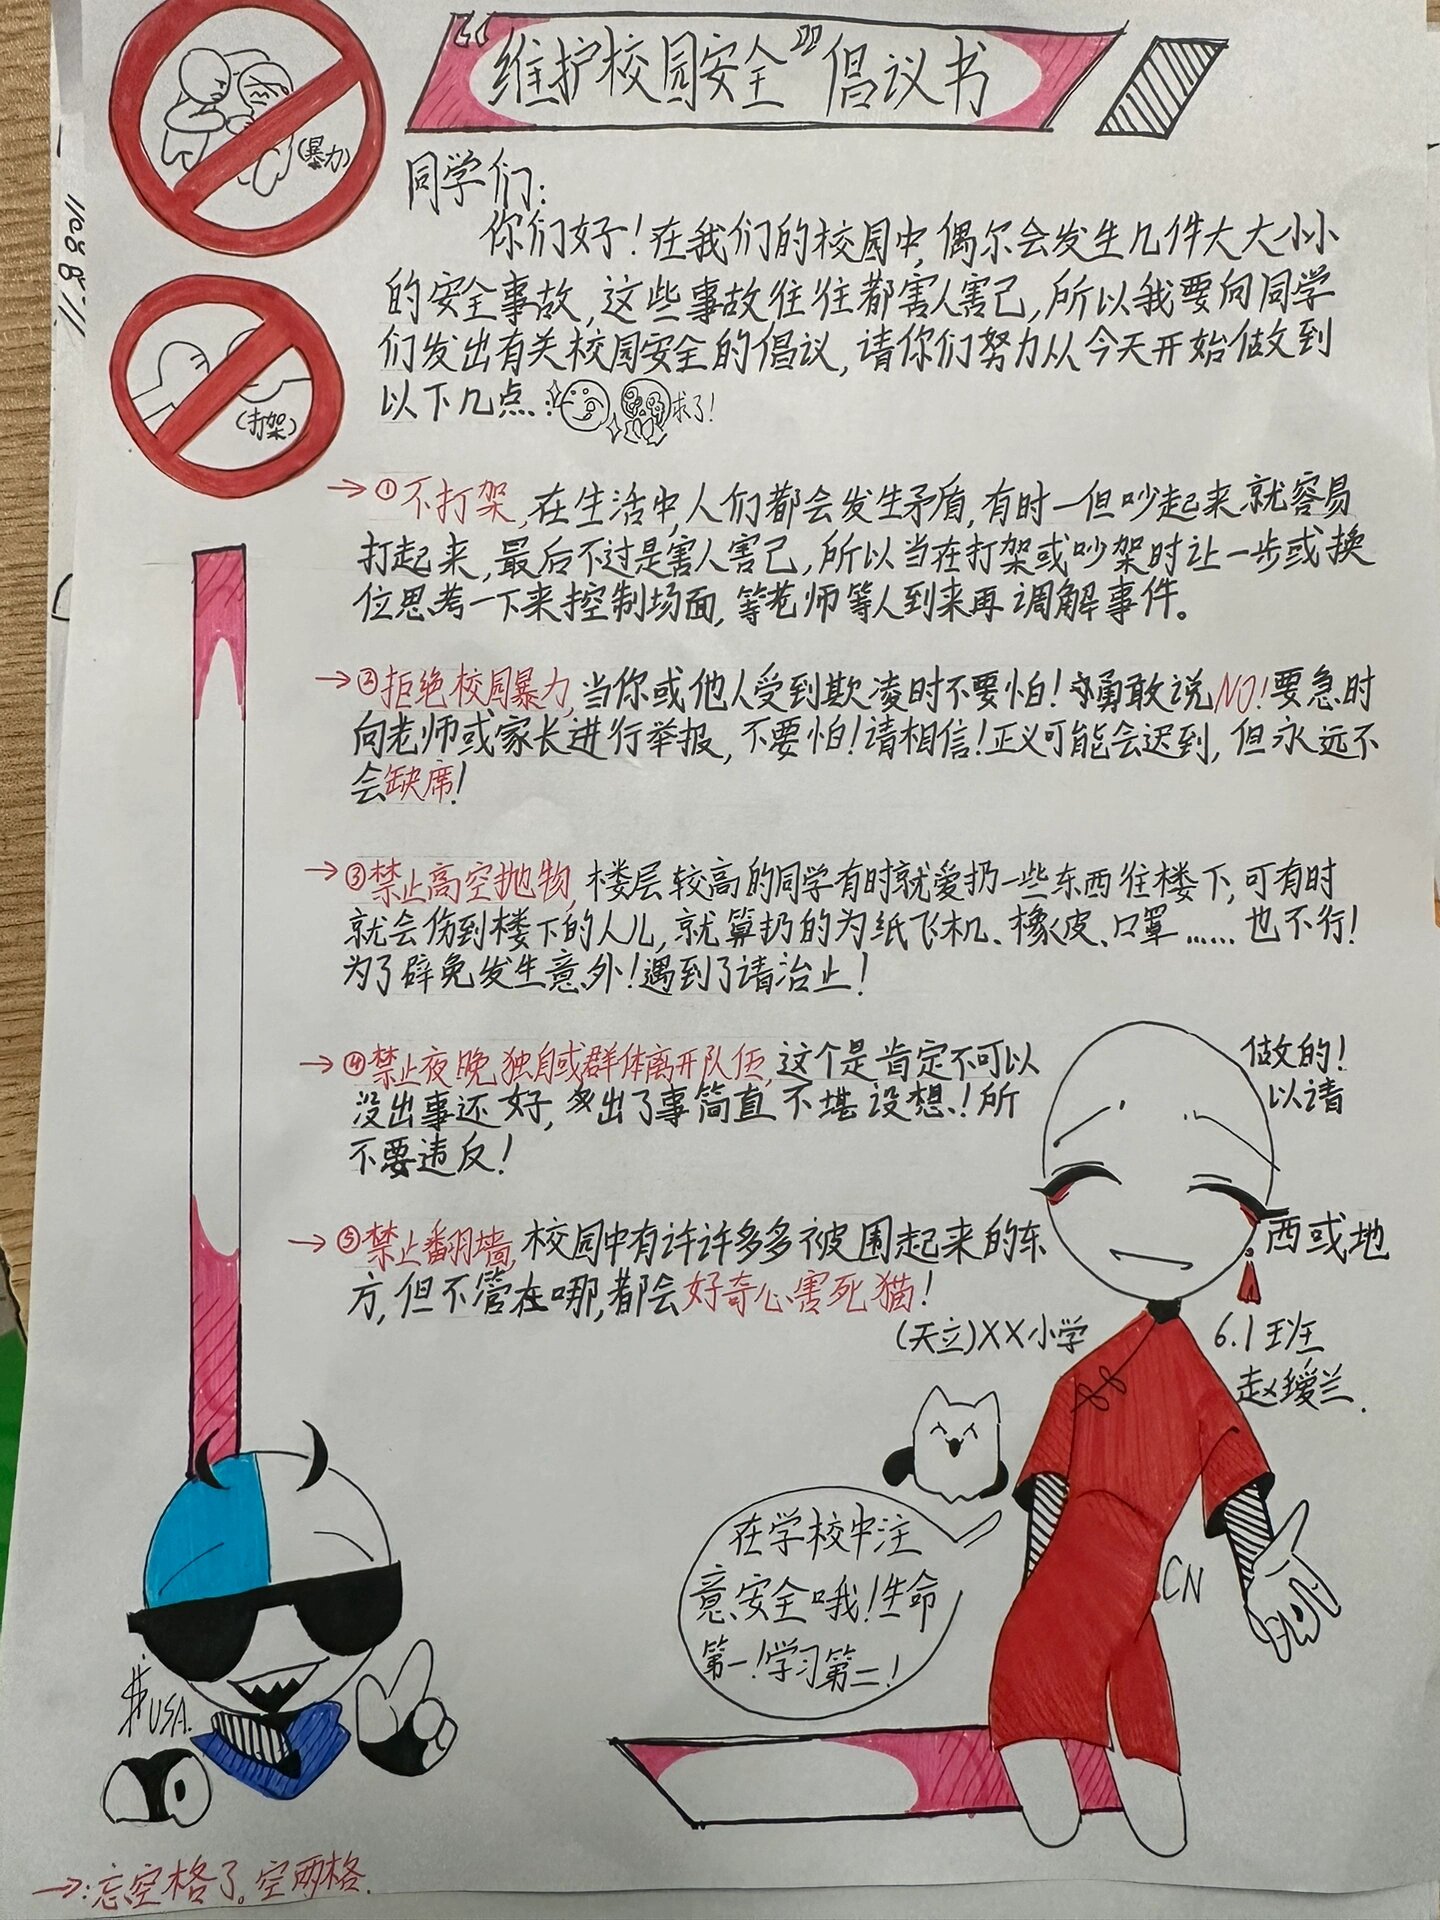 “维护校园安全”倡议书
(暴力)
同学们:
你们好!在我们的校园中,偶尔会发生几件大大小小
的安全事故,这些事故往往都害人害己,所以我要向同学
们发出有关校园安全的倡议,请你们努力从今天开始做到
以下几点:求了!
(打架)
→①不打架,在生活中,人们都会发生矛盾,有时一但吵起来就容易
打起来,最后不过是害人害己,所以当在打架或吵架时让一步或换
位思考一下来控制场面,等老师等人到来再调解事件。
→②拒绝校园暴力,当你或他人受到欺凌时不要怕!勇敢说NO!要急时
向老师或家长进行举报,不要怕!请相信!正义可能会迟到,但永远不
会缺席!
→③禁止高空抛物,楼层较高的同学有时就爱扔一些东西往楼下,可有时
就会伤到楼下的人儿,就算扔的为纸飞机、橡皮、口罩……也不行!
为了辟免发生意外!遇到了请治止!
→④禁止夜晚独自或群体离开队伍,这个是肯定不可以做的!
没出事还好,出了事简直不堪设想!所以请
不要违反!
→⑤禁止翻墙,校园中有许许多多被围起来的东西或地
方,但不管在哪,都会好奇心害死猫!
(天立)XX小学 6.1班
赵瑷兰.
在学校中注
意安全哦!生命
第一!学习第二!
CN
$USA.
→:忘空格了。空两格.